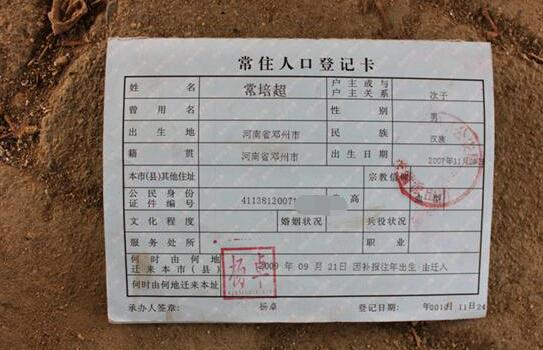 常住人口登记卡
姓名 常培超 户主或与户主关系 次子
曾用名 性别 男
出生地 河南省邓州市 民族 汉族
籍贯 河南省邓州市 出生日期 2007年11月
本市(县)其他住址 宗教信仰
公民身份证件编号 4113812007 身高 血型
文化程度 婚姻状况 兵役状况
服务处所 职业
何时由何地迁来本市(县) 2009年09月21日 因补报往年出生 由迁入
何时由何地迁来本址
承办人签章: 杨卓 登记日期: 年2010 11 24